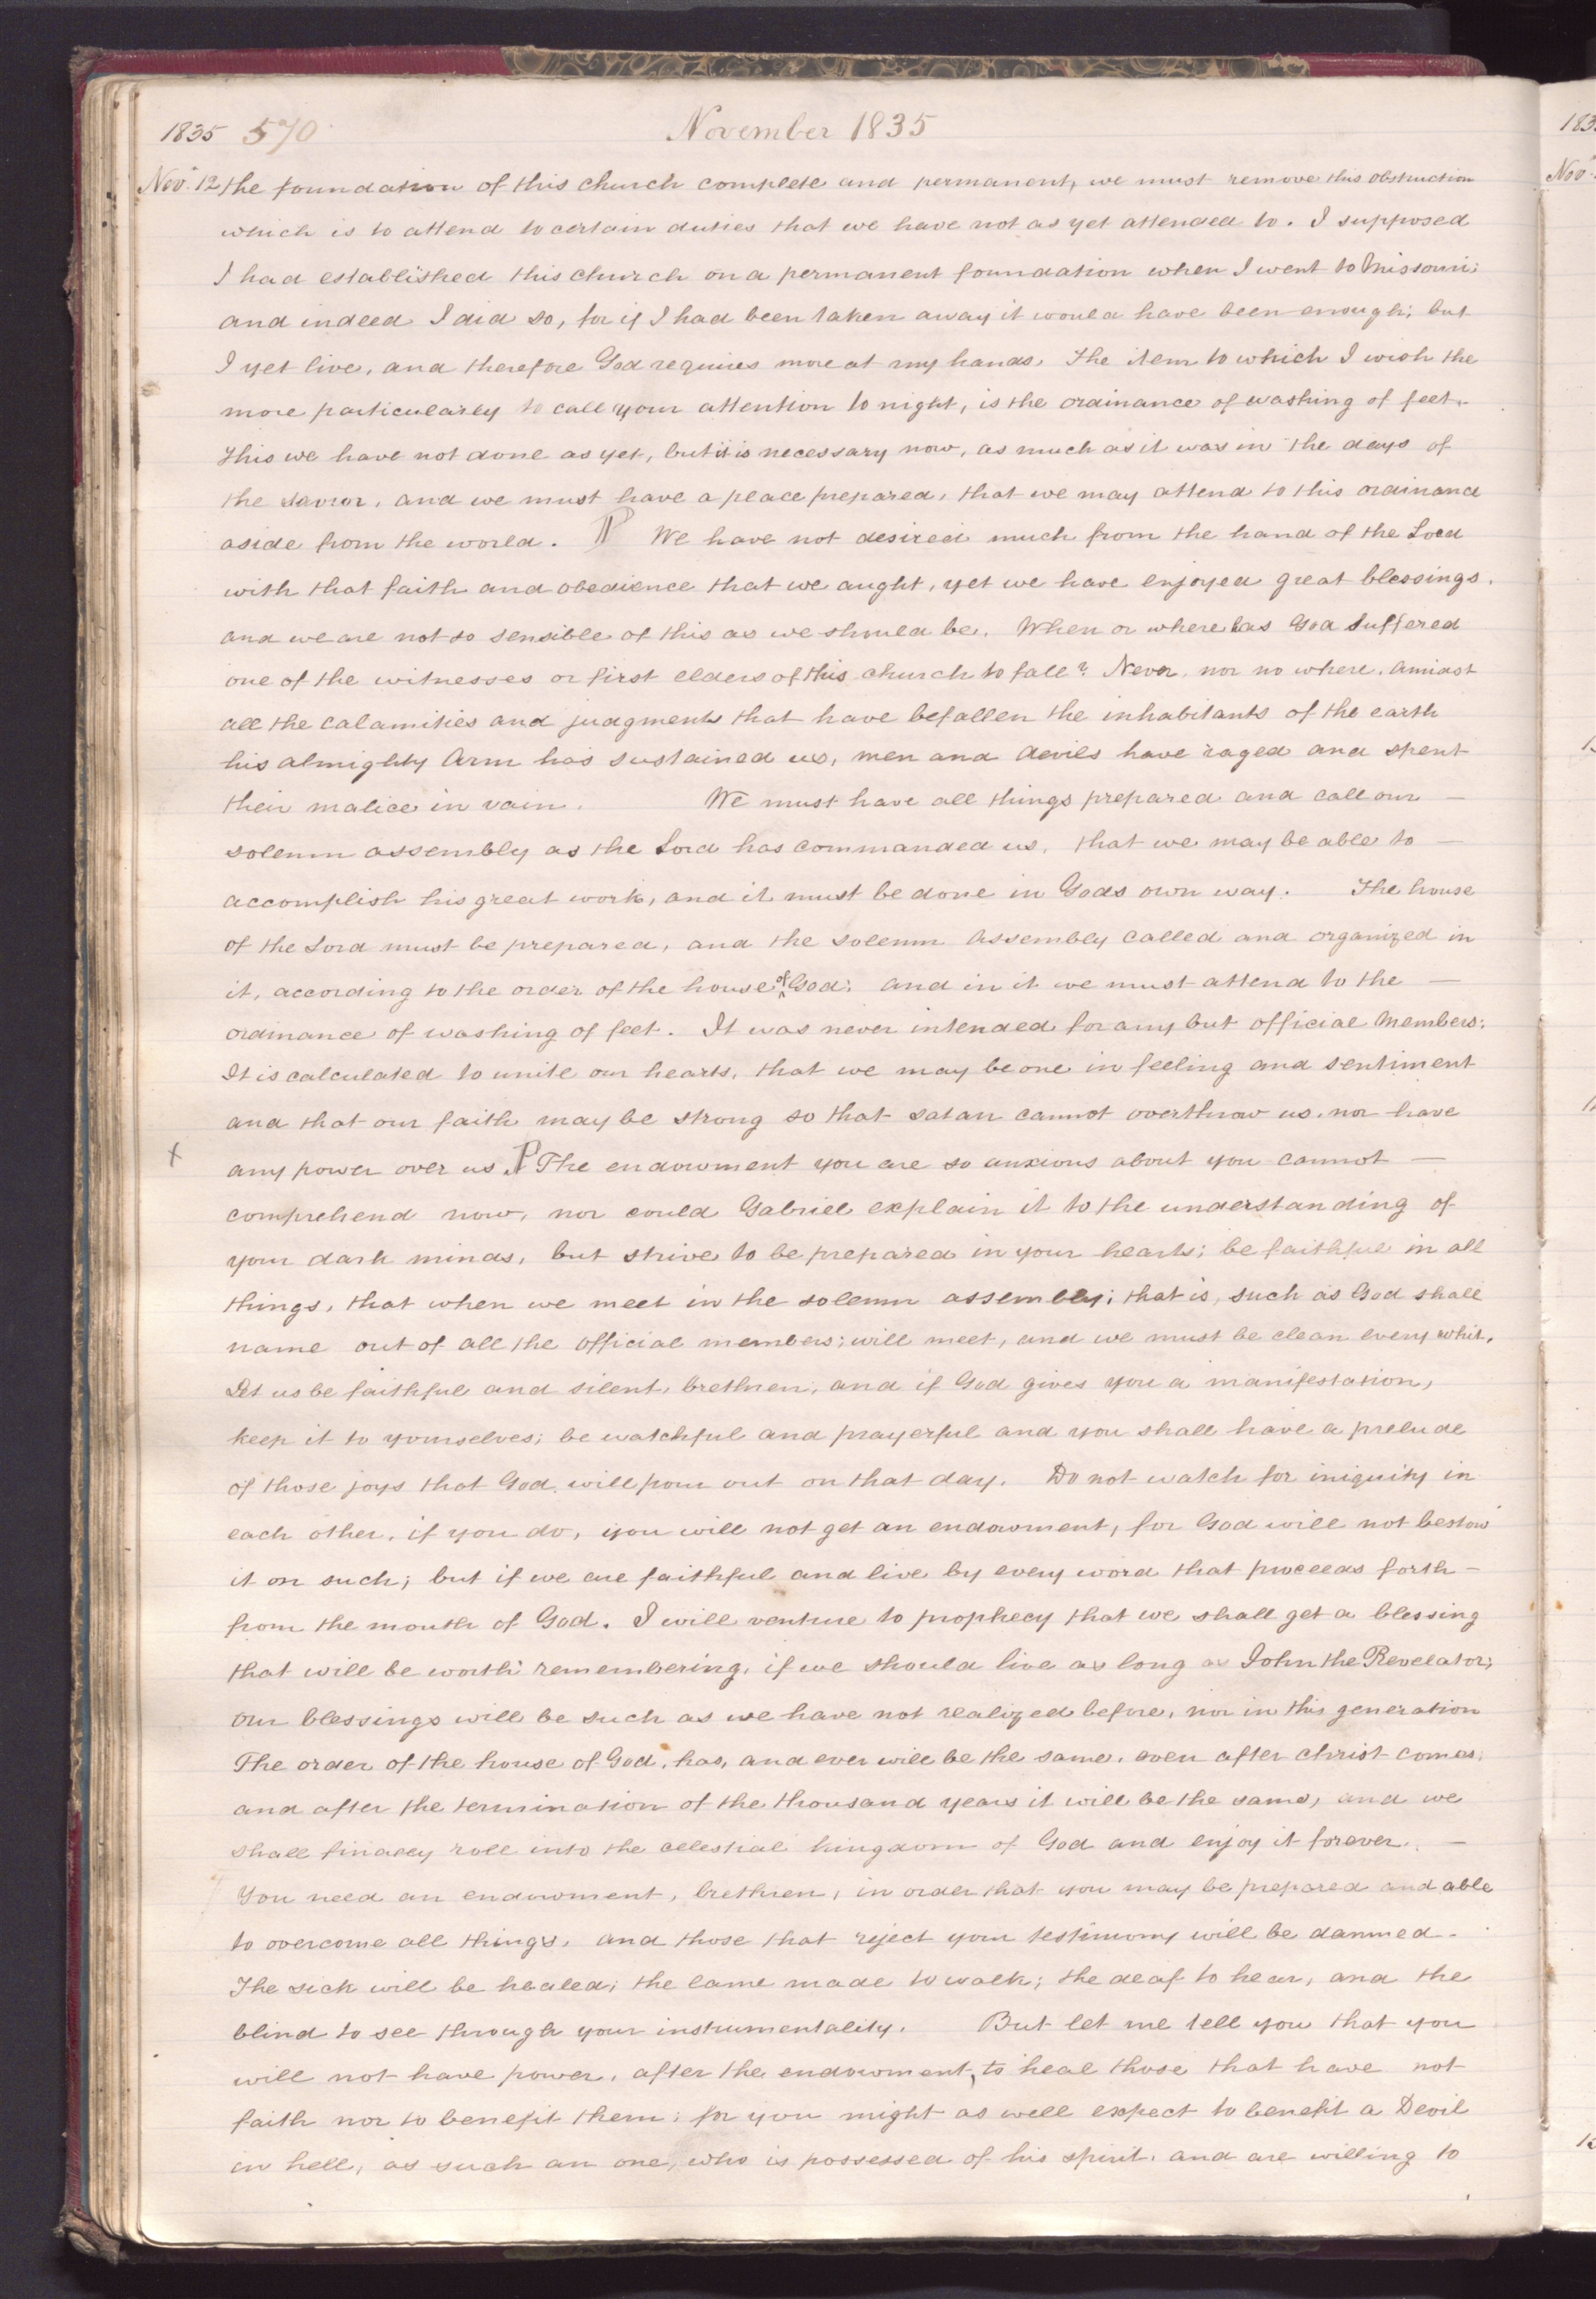 1835 570 November 1835
Nov. 12 the foundation of this church complete and permanent, we must remove this obstruction
which is to attend to certain duties that we have not as yet attended to. I supposed
I had established this church on a permanent foundation when I went to Missouri;
and indeed I did so, for if I had been taken away it would have been enough; but
I yet live, and therefore God requires more at my hands. The item to which I wish the
more particularly to call your attention to night, is the ordinance of washing of feet.
This we have not done as yet, but it is necessary now, as much as it was in the days of
the Savior, and we must have a place prepared, that we may attend to this ordinance
aside from the world. ¶ We have not desired much from the hand of the Lord
with that faith and obedience that we aught, yet we have enjoyed great blessings,
and we are not so sensible of this as we should be. When or where has God suffered
one of the witnesses or first elders of this church to fall? Never, nor no where. Amidst
all the calamities and judgments that have befallen the inhabitants of the earth
his almighty Arm has sustained us, men and devils have raged and spent
their malice in vain. We must have all things prepared and call our —
solemn assembly as the Lord has commanded us, that we may be able to —
accomplish his great work, and it must be done in Gods own way. The house
of the Lord must be prepared, and the solemn assembly called and organized in
it, according to the order of the house of God; and in it we must attend to the —
ordinance of washing of feet. It was never intended for any but official members;
It is calculated to unite our hearts, that we may be one in feeling and sentiment
and that our faith may be strong so that satan cannot overthrow us, nor have
x any power over us. ¶ The endowment you are so anxious about you cannot —
comprehend now, nor could Gabriel explain it to the understanding of
your dark minds, but strive to be prepared in your hearts; be faithful in all
things, that when we meet in the solemn assembly; that is, such as God shall
name out of all the official members; will meet, and we must be clean every whit.
Let us be faithful and silent, brethren, and if God gives you a manifestation,
keep it to yourselves; be watchful and prayerful and you shall have a prelude
of those joys that God will pour out on that day. Do not watch for iniquity in
each other, if you do, you will not get an endowment, for God will not bestow
it on such; but if we are faithful and live by every word that proceeds forth —
from the mouth of God. I will venture to prophecy that we shall get a blessing
that will be worth remembering, if we should live as long as John the Revelator;
our blessings will be such as we have not realized before, nor in this generation
The order of the house of God, has, and ever will be the same, even after christ comes,
and after the termination of the thousand years it will be the same, and we
shall finally roll into the celestial kingdom of God and enjoy it forever. —
You need an endowment, brethren, in order that you may be prepared and able
to overcome all things, and those that reject your testimony will be damned.
The sick will be healed; the lame made to walk; the deaf to hear, and the
blind to see through your instrumentality. But let me tell you that you
will not have power, after the endowment, to heal those that have not
faith nor to benefit them; for you might as well expect to benefit a Devil
in hell, as such an one, who is possessed of his spirit, and are willing to